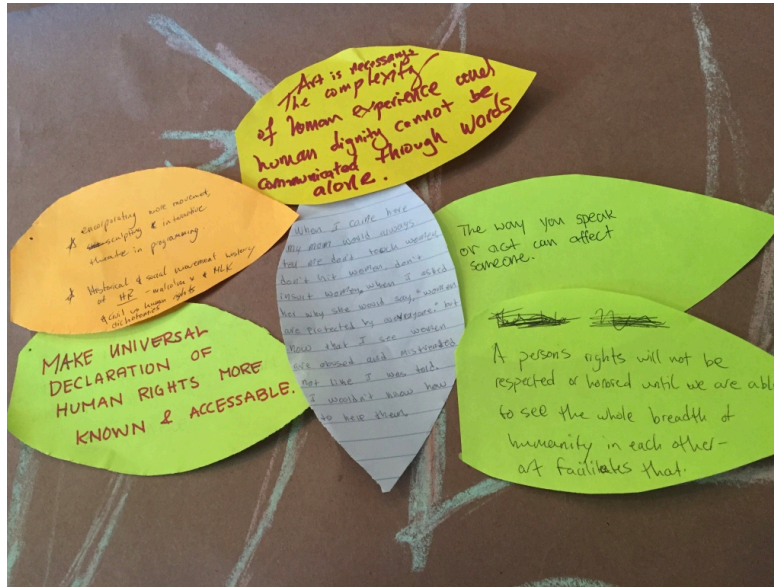 Art is necessary.
The complexity
of human experience and
human dignity cannot be
communicated through words
alone.
encorporating more movement,
sculpting & interactive
theatre in programming
Historical & social movement history
of HR - malcolm x & MLK
& civil vs human rights
dichotomies
MAKE UNIVERSAL
DECLARATION OF
HUMAN RIGHTS MORE
KNOWN & ACCESSABLE.
When I came here
my mom would always
tell me don't touch women
don't hit women, don't
insult women, when I asked
her why she would say, "women
are protected by everyone" but
now that I see women
are abused and mistreated
not like I was told.
I wouldn't know how
to help them.
The way you speak
or act can affect
someone.
A persons rights will not be
respected or honored until we are able
to see the whole breadth of
humanity in each other-
art facilitates that.